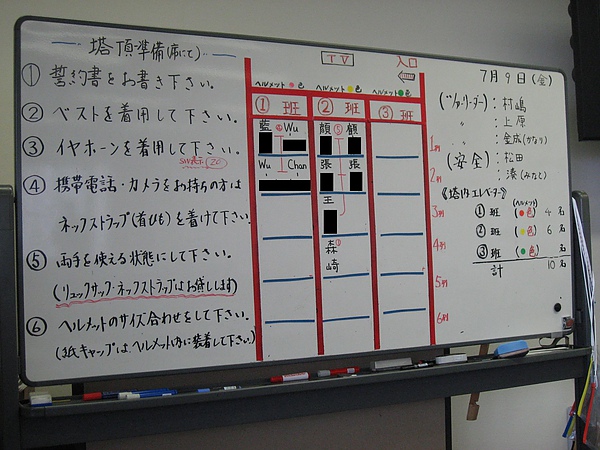 塔頂準備(席にて)
① 誓約書をお書き下さい。
② ベストを着用して下さい。
③ イヤホーンを着用して下さい。
④ 携帯電話・カメラをお持ちの方は
ネックストラップ(首ひも)を着けて下さい。
⑤ 両手を使える状態にして下さい。
(リュックサック・ネックストラップはお貸しします)
⑥ ヘルメットのサイズ合わせをして下さい。
(紙キャップは、ヘルメット内に装着して下さい。)
TV
入口
ヘルメット 色 ヘルメット 色 ヘルメット 色
① 班 ② 班 ③ 班
藍 Wu 顔 ⑤ 顧
Wu Chan 張 張
王
森
崎
1列
2列
3列
4列
5列
6列
7月9日(金)
(ツアーリーダー): 村嶋
: 上原
: 金成(かなり)
(安全): 松田
: 湊(みなと)
《塔内エレベーター》
(ヘルメット)
① 班 (色) 4名
② 班 (色) 6名
③ 班 (色) 名
計 10名